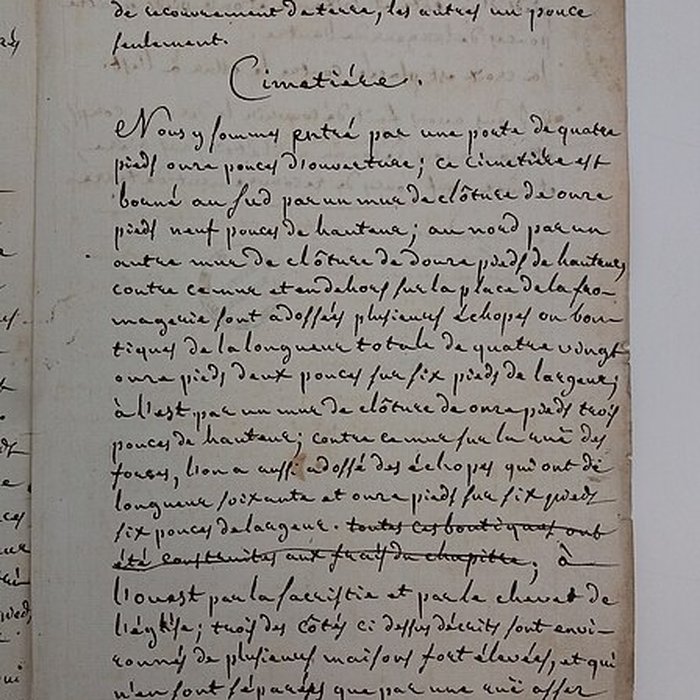 de recouvrement de terre, les autres un pouce
seulement.
Cimetiére.
Nous y sommes entré par une porte de quatre
pieds onze pouces d'ouverture; ce cimetiére est
borné au sud par un mur de clôture de onze
pieds neuf pouces de hauteur; au nord par un
autre mur de clôture de douze pieds de hauteur,
contre ce mur et en dehors sur la place de la fro-
magerie sont adossés plusieurs échopes ou bou-
tiques de la longueur totale de quatre vingt
onze pieds deux pouces sur six pieds de largeur;
à l'est par un mur de clôture de onze pieds trois
pouces de hauteur; contre ce mur sur la ruë des
fosses, l'on a aussi adossé des échopes qui ont de
longueur soixante et onze pieds sur six pieds
six pouces de largeur. toutes ces boutiques ont
été construites aux frais du chapitre; à
l'ouest par la sacristie et par le chevet de
l'église; trois des côtés ci dessus décrits sont envi-
ronnés de plusieurs maisons fort élevées, et qui
n'en sont séparées que par une ruë assez